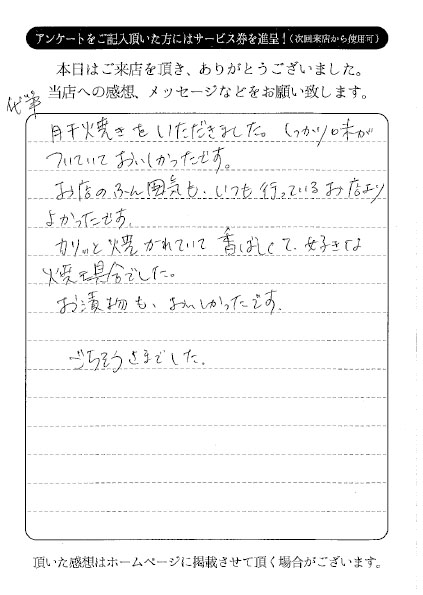 アンケートをご記入頂いた方にはサービス券を進呈！（次回来店から使用可）
本日はご来店を頂き、ありがとうございました。
当店への感想、メッセージなどをお願い致します。
代筆
肝焼きをいただきました。しっかり味が
ついていておいしかったです。
お店のふん囲気も、いつも行っているお店より
よかったです。
カリッと焼かれていて香ばしくて、好きな
焼き具合でした。
お漬物も、おいしかったです。
ごちそうさまでした。
頂いた感想はホームページに掲載させて頂く場合がございます。